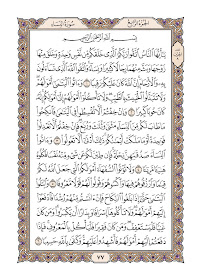 الجزء الرابع سورة النساء
بِسْمِ ٱللَّهِ ٱلرَّحْمَٰنِ ٱلرَّحِيمِ
يَٰٓأَيُّهَا ٱلنَّاسُ ٱتَّقُوا۟ رَبَّكُمُ ٱلَّذِى خَلَقَكُم مِّن نَّفْسٍ وَٰحِدَةٍ وَخَلَقَ مِنْهَا
زَوْجَهَا وَبَثَّ مِنْهُمَا رِجَالًا كَثِيرًا وَنِسَآءً وَٱتَّقُوا۟ ٱللَّهَ ٱلَّذِى تَسَآءَلُونَ
بِهِۦ وَٱلْأَرْحَامَ إِنَّ ٱللَّهَ كَانَ عَلَيْكُمْ رَقِيبًا ١ وَءَاتُوا۟ ٱلْيَتَٰمَىٰٓ أَمْوَٰلَهُمْ
وَلَا تَتَبَدَّلُوا۟ ٱلْخَبِيثَ بِٱلطَّيِّبِ وَلَا تَأْكُلُوٓا۟ أَمْوَٰلَهُمْ إِلَىٰٓ أَمْوَٰلِكُمْ إِنَّهُۥ
كَانَ حُوبًا كَبِيرًا ٢ وَإِنْ خِفْتُمْ أَلَّا تُقْسِطُوا۟ فِى ٱلْيَتَٰمَىٰ فَٱنكِحُوا۟
مَا طَابَ لَكُم مِّنَ ٱلنِّسَآءِ مَثْنَىٰ وَثُلَٰثَ وَرُبَٰعَ فَإِنْ خِفْتُمْ أَلَّا تَعْدِلُوا۟
فَوَٰحِدَةً أَوْ مَا مَلَكَتْ أَيْمَٰنُكُمْ ذَٰلِكَ أَدْنَىٰٓ أَلَّا تَعُولُوا۟ ٣ وَءَاتُوا۟
ٱلنِّسَآءَ صَدُقَٰتِهِنَّ نِحْلَةً فَإِن طِبْنَ لَكُمْ عَن شَىْءٍ مِّنْهُ نَفْسًا فَكُلُوهُ
هَنِيٓـًٔا مَّرِيٓـًٔا ٤ وَلَا تُؤْتُوا۟ ٱلسُّفَهَآءَ أَمْوَٰلَكُمُ ٱلَّتِى جَعَلَ ٱللَّهُ لَكُمْ
قِيَٰمًا وَٱرْزُقُوهُمْ فِيهَا وَٱكْسُوهُمْ وَقُولُوا۟ لَهُمْ قَوْلًا مَّعْرُوفًا ٥ وَٱبْتَلُوا۟
ٱلْيَتَٰمَىٰ حَتَّىٰٓ إِذَا بَلَغُوا۟ ٱلنِّكَاحَ فَإِنْ ءَانَسْتُم مِّنْهُمْ رُشْدًا فَٱدْفَعُوٓا۟
إِلَيْهِمْ أَمْوَٰلَهُمْ وَلَا تَأْكُلُوهَآ إِسْرَافًا وَبِدَارًا أَن يَكْبَرُوا۟ وَمَن كَانَ
غَنِيًّا فَلْيَسْتَعْفِفْ وَمَن كَانَ فَقِيرًا فَلْيَأْكُلْ بِٱلْمَعْرُوفِ فَإِذَا
دَفَعْتُمْ إِلَيْهِمْ أَمْوَٰلَهُمْ فَأَشْهِدُوا۟ عَلَيْهِمْ وَكَفَىٰ بِٱللَّهِ حَسِيبًا ٦
٧٧